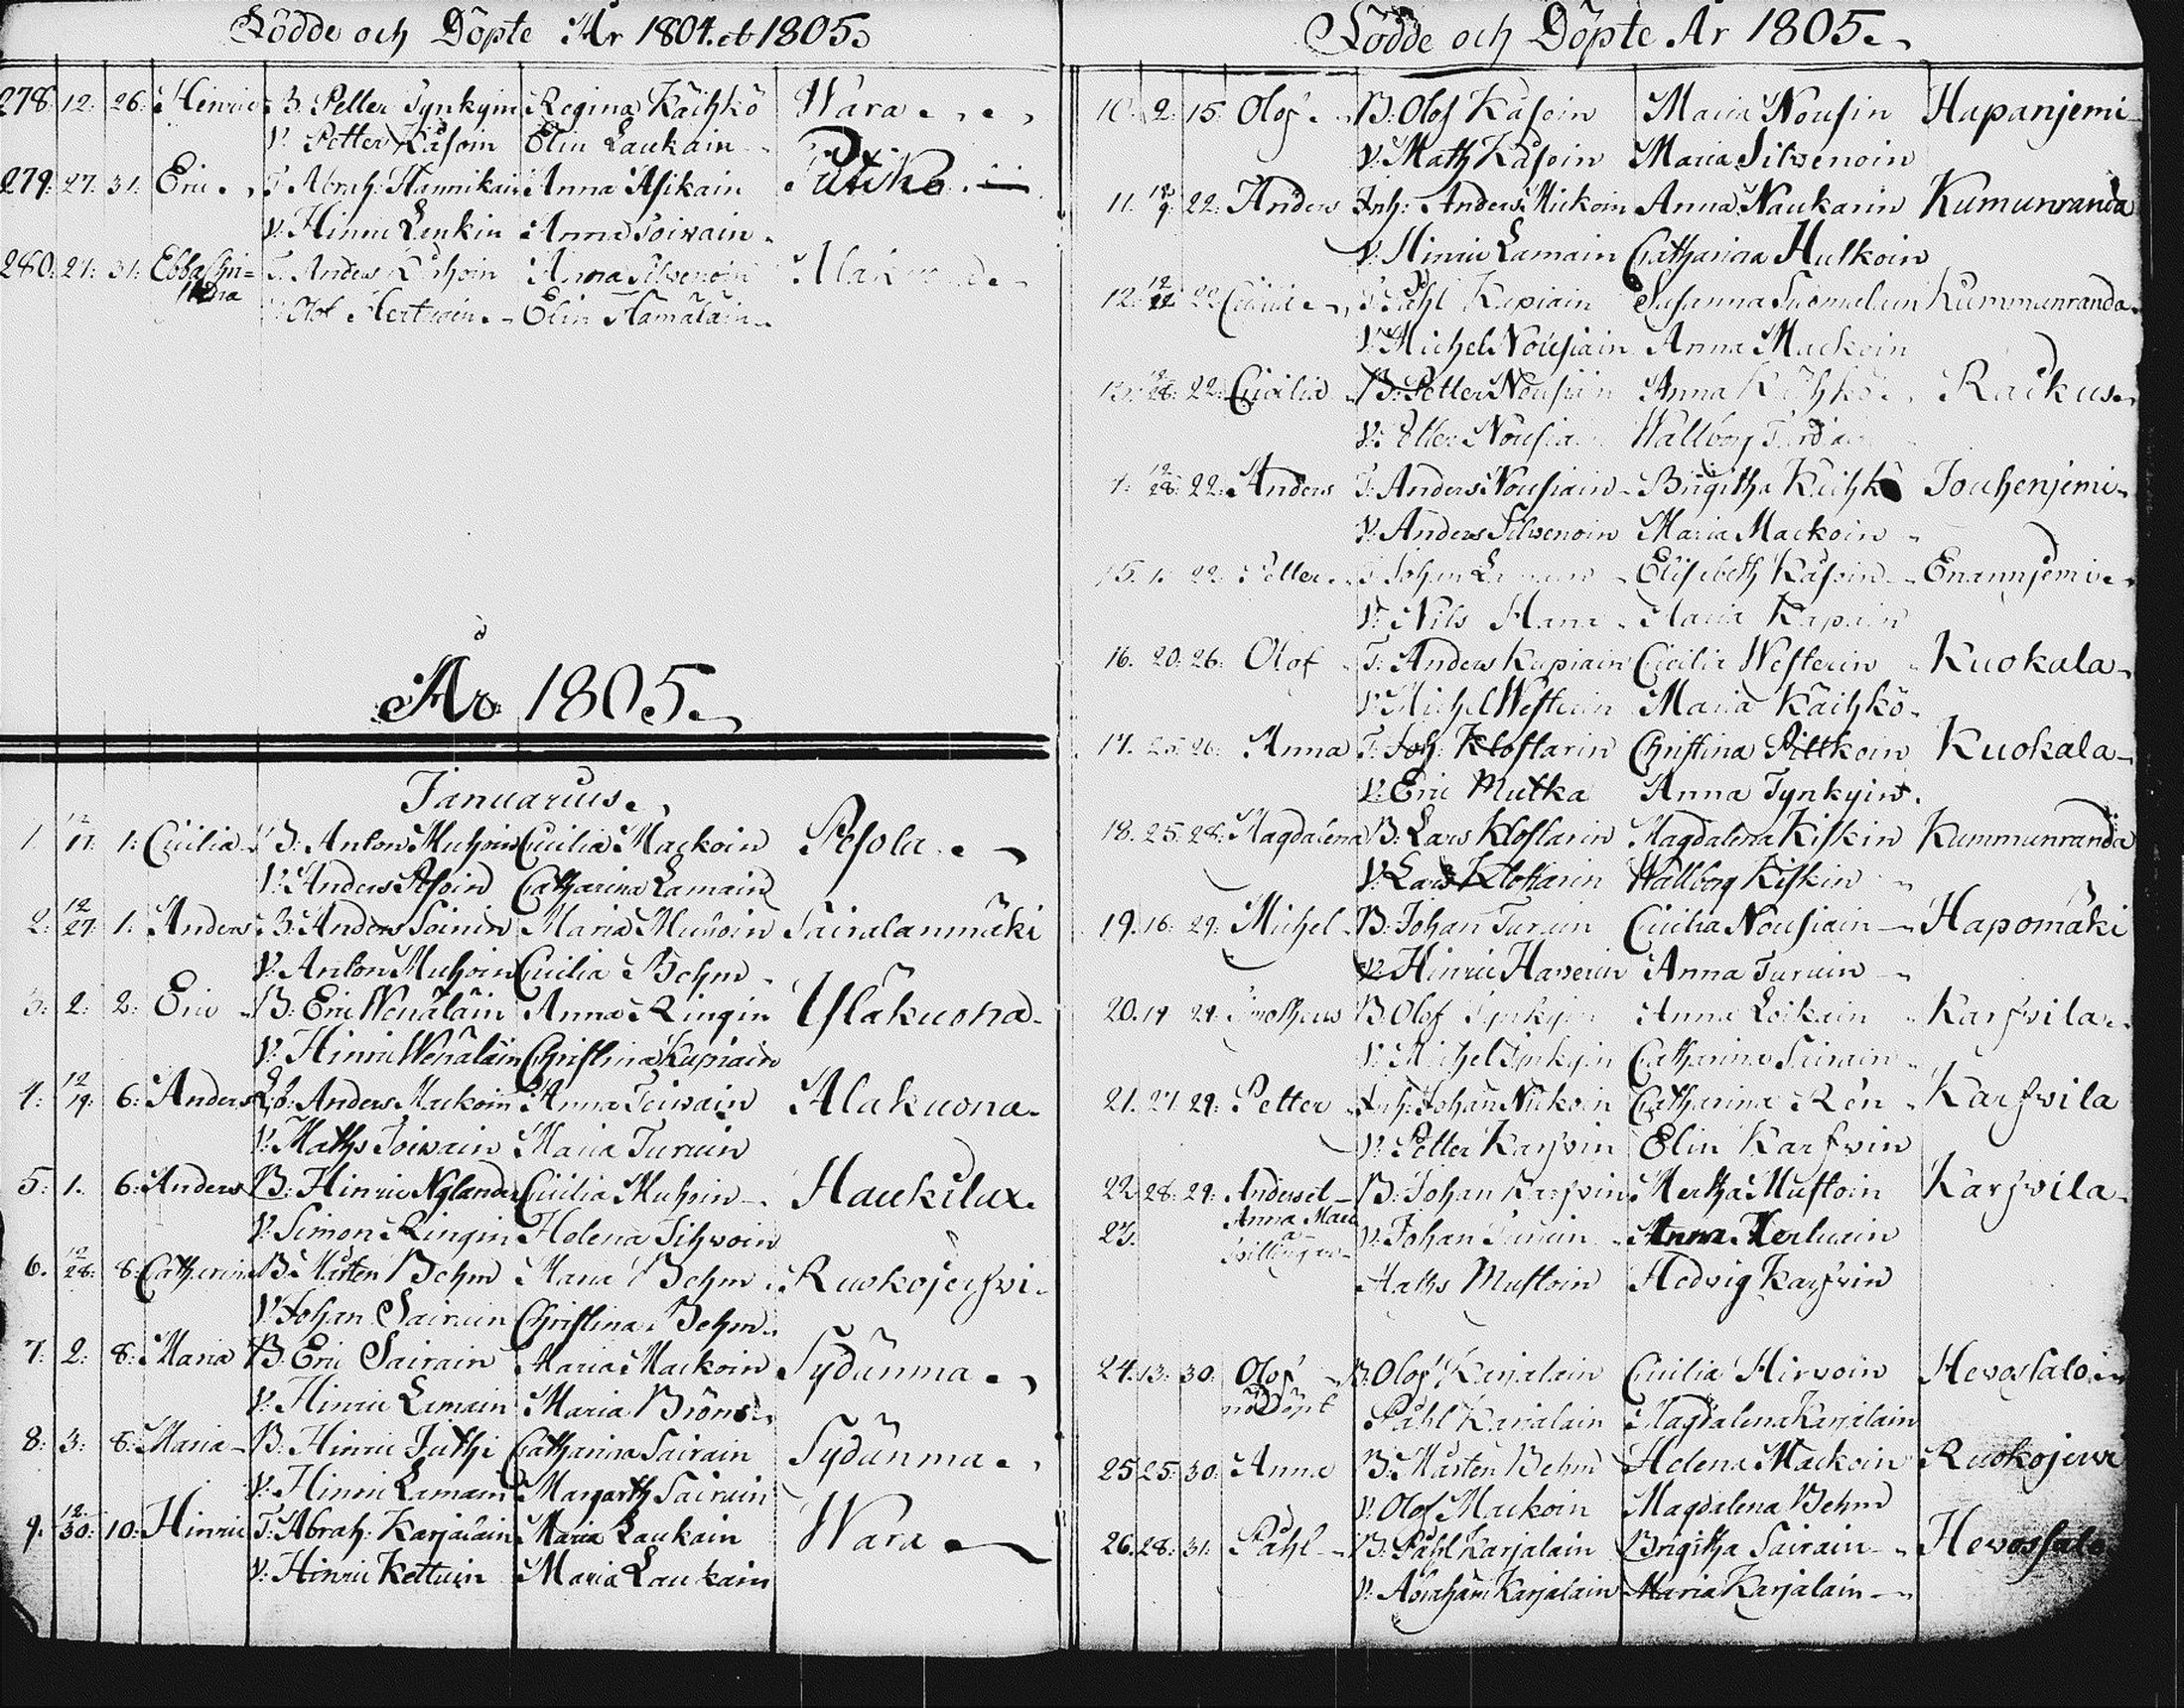 Födde och Döpte År 1804. et 1805.
278. 12. 26. Hinric B. Petter Tynkyin Regina Käihkö Wara
V. Petter Käsoin Elin Laukain
279. 27. 31. Eric T. Abrah: Hannikain Anna Asikain Putiko
V. Hinric Lenkin Anna Toiwain
280. 21. 31. Ebba Chri= T. Anders Anna Silvenoin
stina
V. Olof Elin Hämäläin
År 1805.
Januarius.
1. 12/17. 1. Cicilia B. Anton Muhoin Cicilia Mackoin Pesola
V. Anders Asoin Catharina Lamain
2. 12/27. 1. Anders B. Anders Soinin Maria Muhoin Sairalanmäki
V. Anton Muhoin Cicilia Behm
3. 2. 2. Eric B. Eric Wenäläin Anna Ringin Yläkuona
V. Hinric Wenäläin Christina Kupiain
4. 12/19. 6. Anders Anders Mackoin Anna Toiwain Alakuona
V. Maths Toiwain Maria Turuin
5. 1. 6. Anders B. Hinric Nylander Cicilia Muhoin Haukilax
V. Simon Ringin Helena Sihvoin
6. 12/28. 8. Catharina B. Mårten Behm Maria Behm Ruokojerfvi
V. Johan Sairain Christina Behm
7. 2. 8. Maria B. Eric Sairain Maria Mackoin Sydänma
V. Hinric Lamain Maria Bröms
8. 3. 8. Maria B. Hinric Juthi Catharina Sairain Sydänma
V. Hinric Lamain Margarth Sairain
9. 12/30. 10. Hinric T. Abrah: Karjalain Maria Laukain Wara
V. Hinric Kettuin Maria Laukain
Födde och Döpte År 1805.
10. 2. 15. Olof B. Olof Käsoin Maria Nousin Hapanjemi
V. Math Käsoin Maria Silwenoin
11. 12/9. 22. Anders Inh: Anders Mickoin Anna Naukarin Kumunranda
V. Hinric Lamain Catharina Hulkoin
12. 12/22. 22. Cicilia T. Påhl Kupiain Susanna Suomalain Kummunranda
V. Michel Nousiain Anna Mackoin
13. 12/28. 22. Cicilia B. Petter Nousiain Anna Käihkö Rackus
V. Petter Nousiain Wallborg
12/28. 22. Anders T. Anders Nousiain Brigitha Käihkö Jouhenjemi
V. Anders Silwenoin Maria Mackoin
15. 1. 22. Petter T. Johan Elisabeth Käsoin Enannjemi
V. Nils Maria Kapiain
16. 20. 26. Olof T. Anders Kupiain Cicilia Westerin Kuokala
V. Michel Westerin Maria Käihkö
17. 25. 26. Anna T. Joh: Klostarin Christina Pittkoin Kuokala
V. Eric Mutka Anna Tynkyin
18. 25. 28. Magdalena B. Lars Klostarin Magdalena Kiskin Kummunranda
V. Lars Klostarin Wallborg Kiskin
19. 16. 29. Michel B. Johan Turuin Cicilia Nousiain Hapomäki
V. Hinric Haverin Anna Turuin
20. 14 29. Timotheus B. Olof Tynkyin Anna Loikain Karfvila
V. Michel Tynkyin Catharina Sairain
21. 27. 29. Petter Inh: Johan Nickoin Catharina Rén Karfvila
V. Petter Karfvin Elin Karfvin
22. 28. 29. Anders et B. Johan Karfvin Mertha Mustoin Karfvila
23. Anna Maria V. Johan Turuin Anna Kertuin
Tvillingar Maths Mustoin Hedvig Karfvin
24. 13. 30. Olof B. Olof Karjalain Cicilia Hirvoin Hevossalo
nöddöpt Påhl Karjalain Magdalena Karjalain
25. 25. 30. Anna B. Mårten Behm Helena Mackoin Ruokojerwi
V. Olof Mackoin Magdalena Behm
26. 28. 31. Påhl B. Påhl Karjalain Brigitha Sairain Hevossalo
V. Abraham Karjalain Maria Karjalain